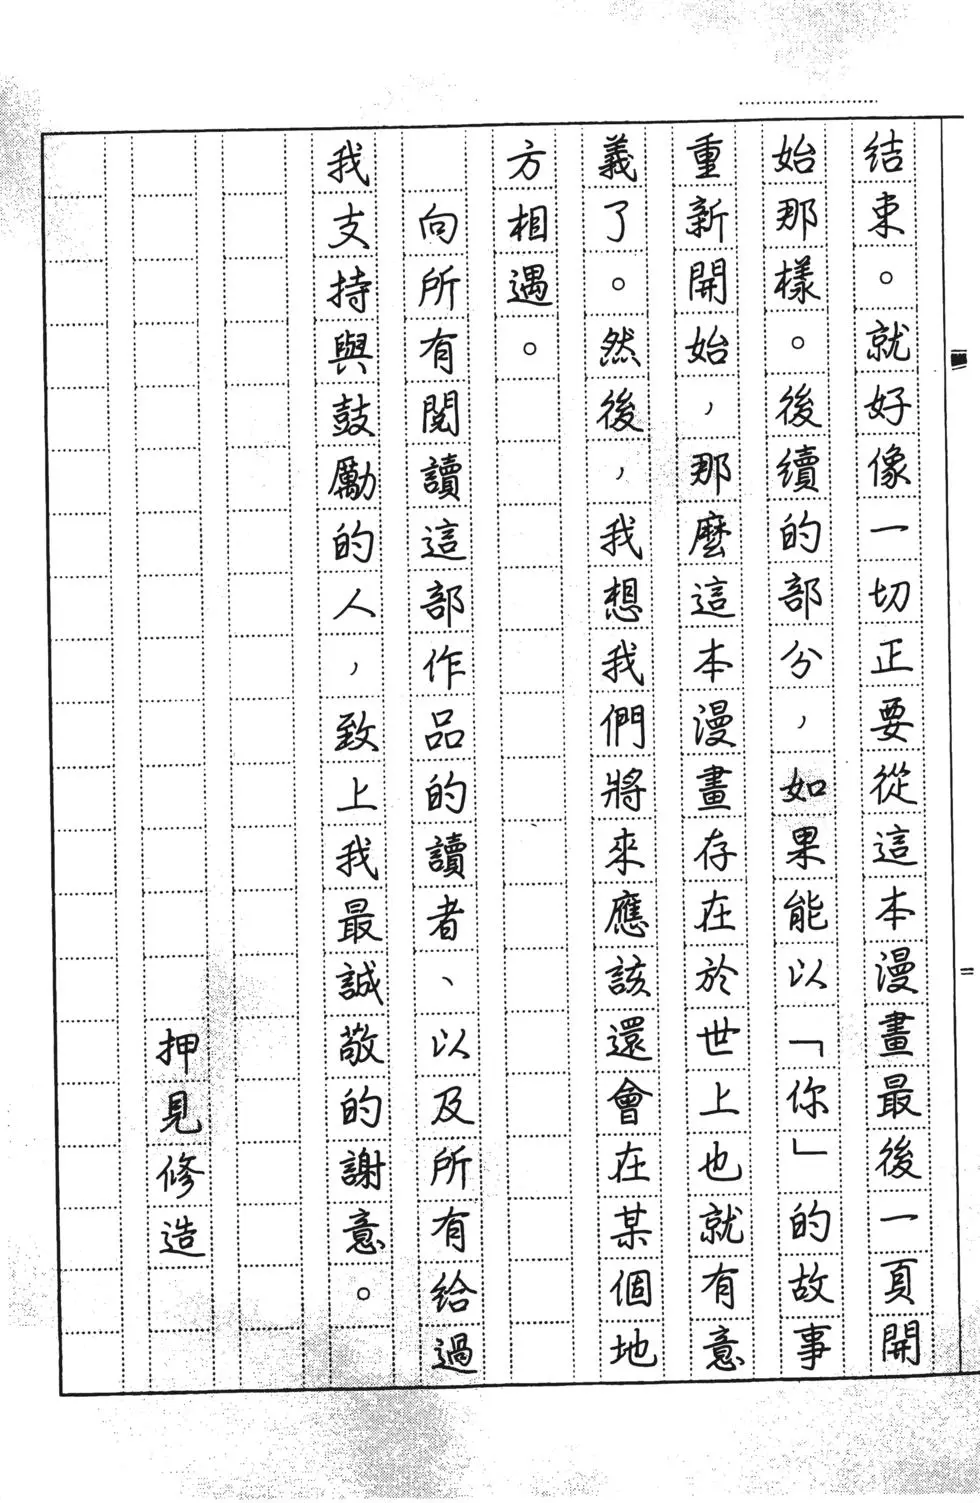 結束。就好像一切正要從這本漫畫最後一頁開
始那樣。後續的部分，如果能以「你」的故事
重新開始，那麼這本漫畫存在於世上也就有意
義了。然後，我想我們將來應該還會在某個地
方相遇。
向所有閱讀這部作品的讀者、以及所有給過
我支持與鼓勵的人，致上我最誠敬的謝意。
押見修造